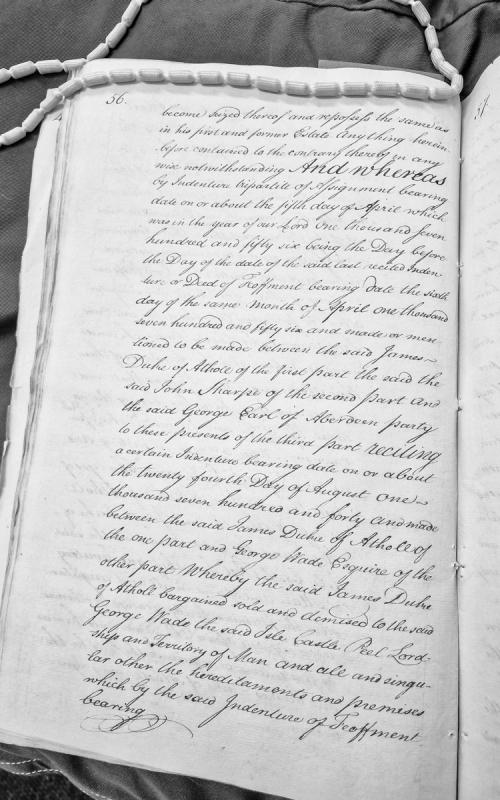 56.
become Seized thereof and repossess the same as
in his first and former Estate any thing herein
before contained to the contrary thereof in any
wise notwithstanding And whereas
by Indenture tripartite of Assignment bearing
date on or about the fifth day of April which
was in the year of our Lord One thousand seven
hundred and fifty six being the Day before
the Day of the date of the said last recited Inden-
ture or Deed of Feoffment bearing date the sixth
day of the same month of April one thousand
seven hundred and fifty six and made or men-
tioned to be made between the said James
Duke of Athole of the first part the said the
said John Sharpe of the second part and
the said George Earl of Aberdeen party
to these presents of the third part reciting
a certain Indenture bearing date on or about
the twenty fourth Day of August one
thousand seven hundred and forty and made
between the said James Duke of Athole of
the one part and George Wade Esquire of the
other part Whereby the said James Duke
of Athole bargained sold and demised to the said
George Wade the said Isle Castle Peel Lord-
ship and Territory of Man and all and singu-
lar other the hereditaments and premises
which by the said Indenture of Feoffment
bearing
57